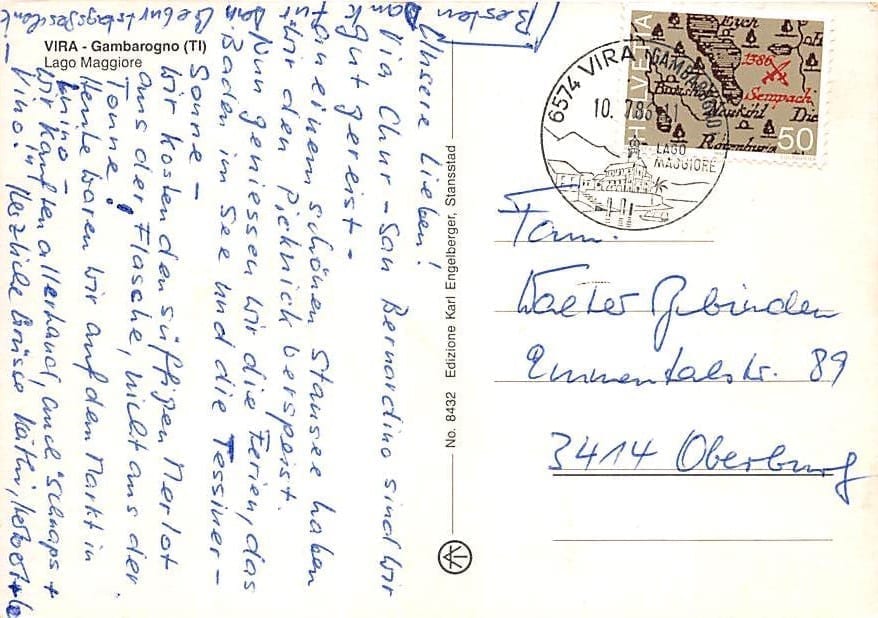 VIRA - Gambarogno (TI)
Lago Maggiore
Besten
Dank
für
das
Geburtstagsgeschenk! -
Unsere Lieben!
Via Chur - San Bernardino sind wir
gut gereist -
An einem schönen Stausee haben
wir den Picknick verspeist.
Nun geniessen wir die Ferien, das
Baden im See und die Tessiner-
Sonne -
Wir kosten den süffigen Merlot
aus der Flasche, nicht aus der
Tonne!
Heute waren wir auf dem Markt in
Luino -
wir kauften allerhand, auch Schnaps +
Vino. Herzliche Grüsse Käthi,
No. 8432 Edizione Karl Engelberger, Stansstad
6574 VIRA (GAMBAROGNO)
10. 7.86
LAGO
MAGGIORE
HELVETIA
1386
Sempach
Rotenburg
50
Fam.
Walter
Emmentalstr. 89
3414 Oberburg